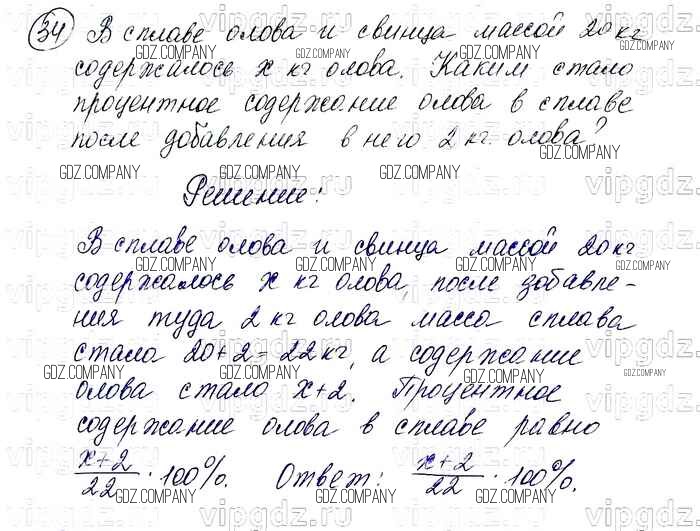 34 В сплаве олова и свинца массой 20 кг
содержалось x кг олова. Каким стало
процентное содержание олова в сплаве
после добавления в него 2 кг. олова?
Решение:
В сплаве олова и свинца массой 20 кг
содержалось x кг олова, после добавле-
ния туда 2 кг олова масса сплава
стала 20+2=22 кг, а содержание
олова стало x+2. Процентное
содержание олова в сплаве равно
x+2/22 · 100%. Ответ: x+2/22 · 100%.
GDZ.COMPANY
vipgdz.ru